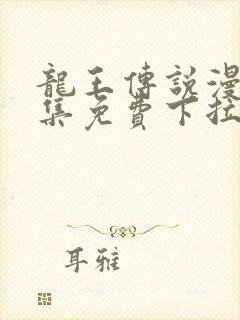 龍王傳說漫
集免費下拉
耳雅